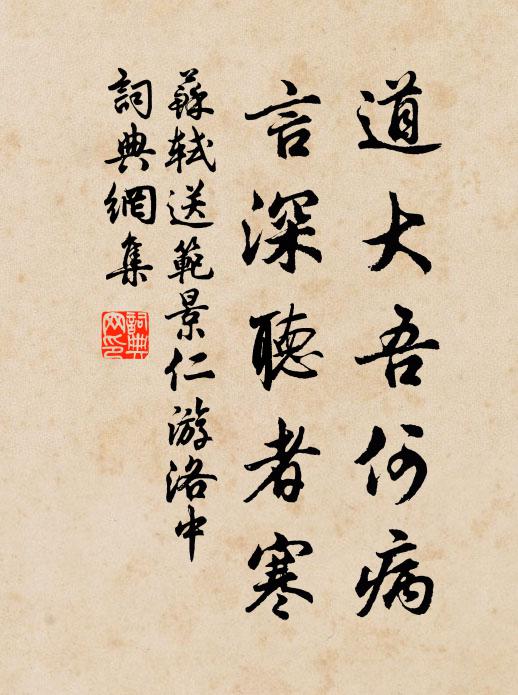 道大吾何病
言深聽者寒
蘇軾送範景仁游洛中
詞典網集
詞典
网印